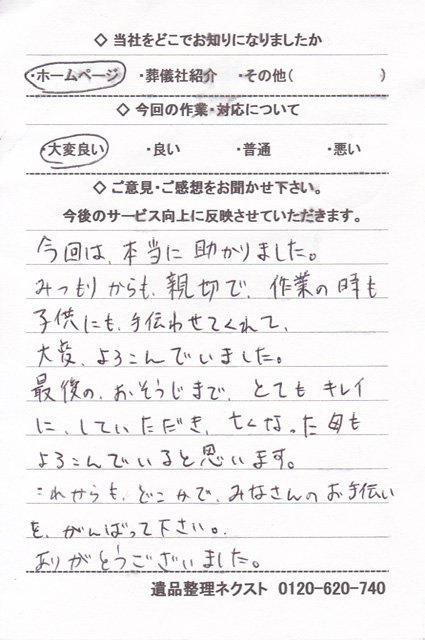 ◇ 当社をどこでお知りになりましたか
・ホームページ ・葬儀社紹介 ・その他( )
◇ 今回の作業・対応について
・大変良い ・良い ・普通 ・悪い
◇ ご意見・ご感想をお聞かせ下さい。
今後のサービス向上に反映させていただきます。
今回は、本当に助かりました。
みつもりからも、親切で、作業の時も
子供にも、手伝わせてくれて、
大変、よろこんでいました。
最後の、おそうじまで、とてもキレイ
に、していただき、亡くなった母も
よろこんでいると思います。
これからも、どこかで、みなさんのお手伝い
を、がんばって下さい。
ありがとうございました。
遺品整理ネクスト 0120-620-740